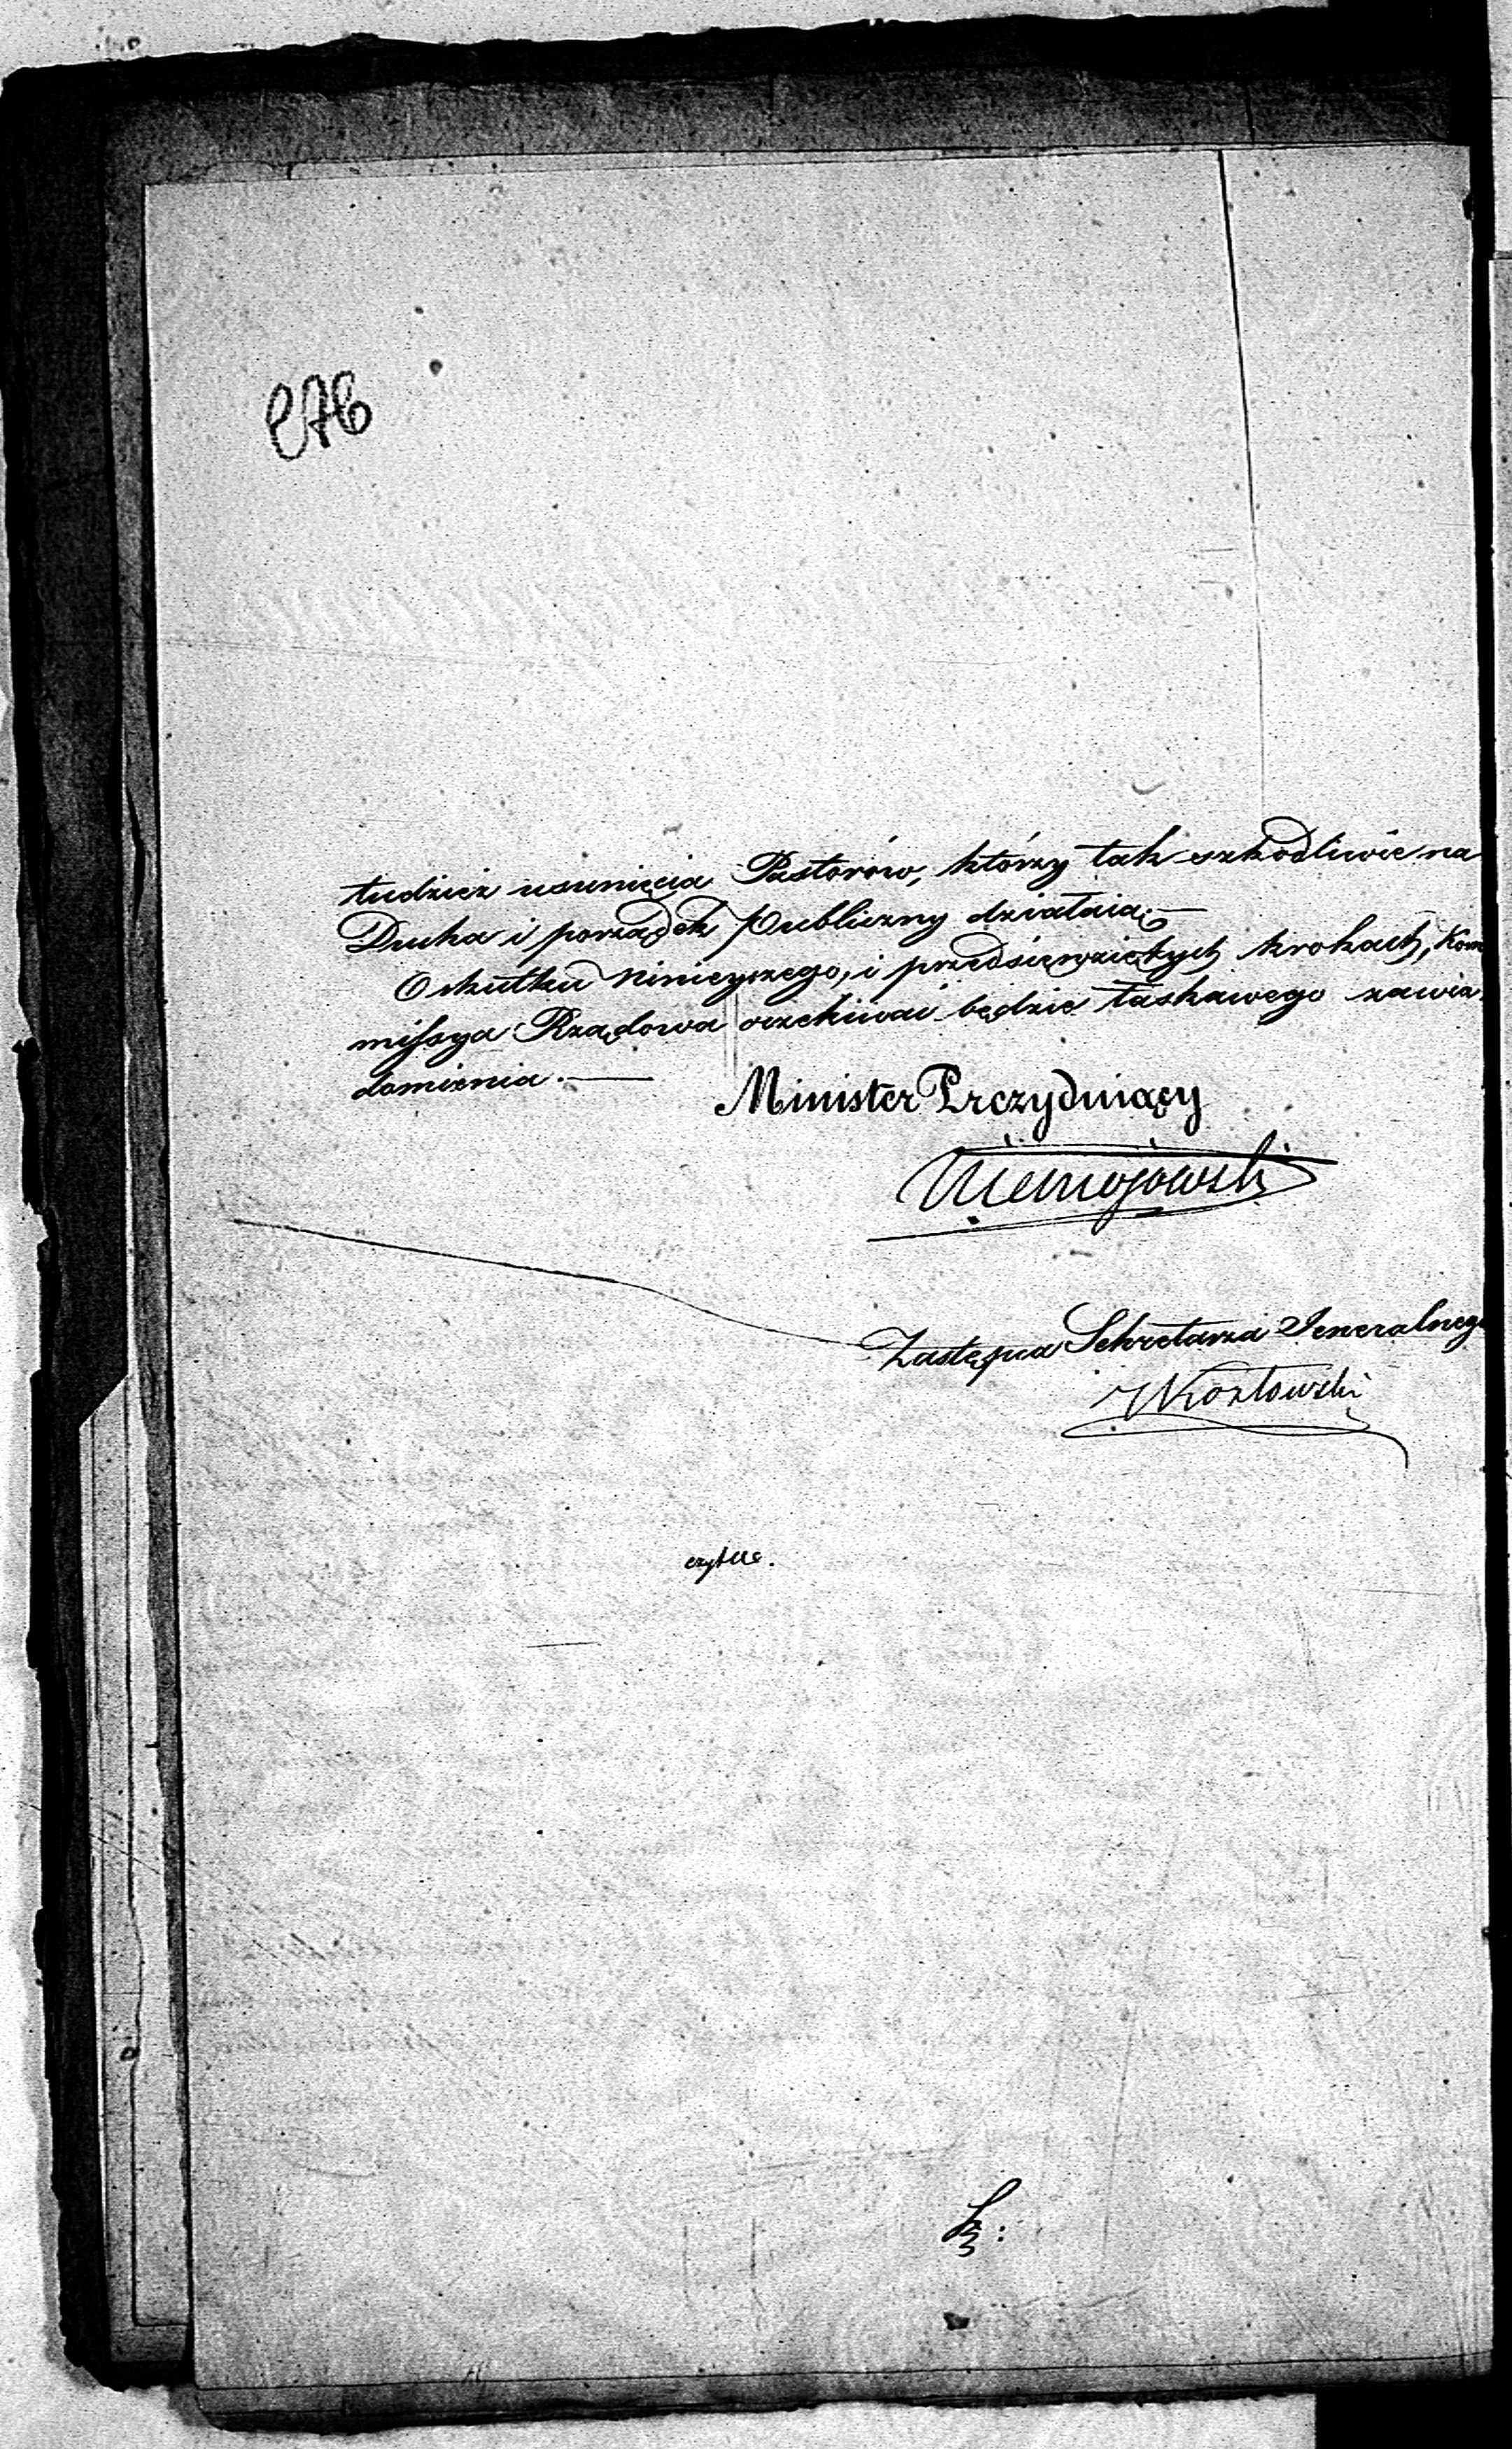 276
tudzież usunięcia Pastorów, którzy tak szkodliwie na
Ducha i porządek publiczny działaią.—
O skutku ninieyszego, i przedsięwziętych krokach, Kom
missya Rządowa oczekiwać będzie łaskawego zawia-
domienia.—
Minister Prezyduiący
Niemojowski
Zastępca Sekretarza Jeneralnego
Kozłowski